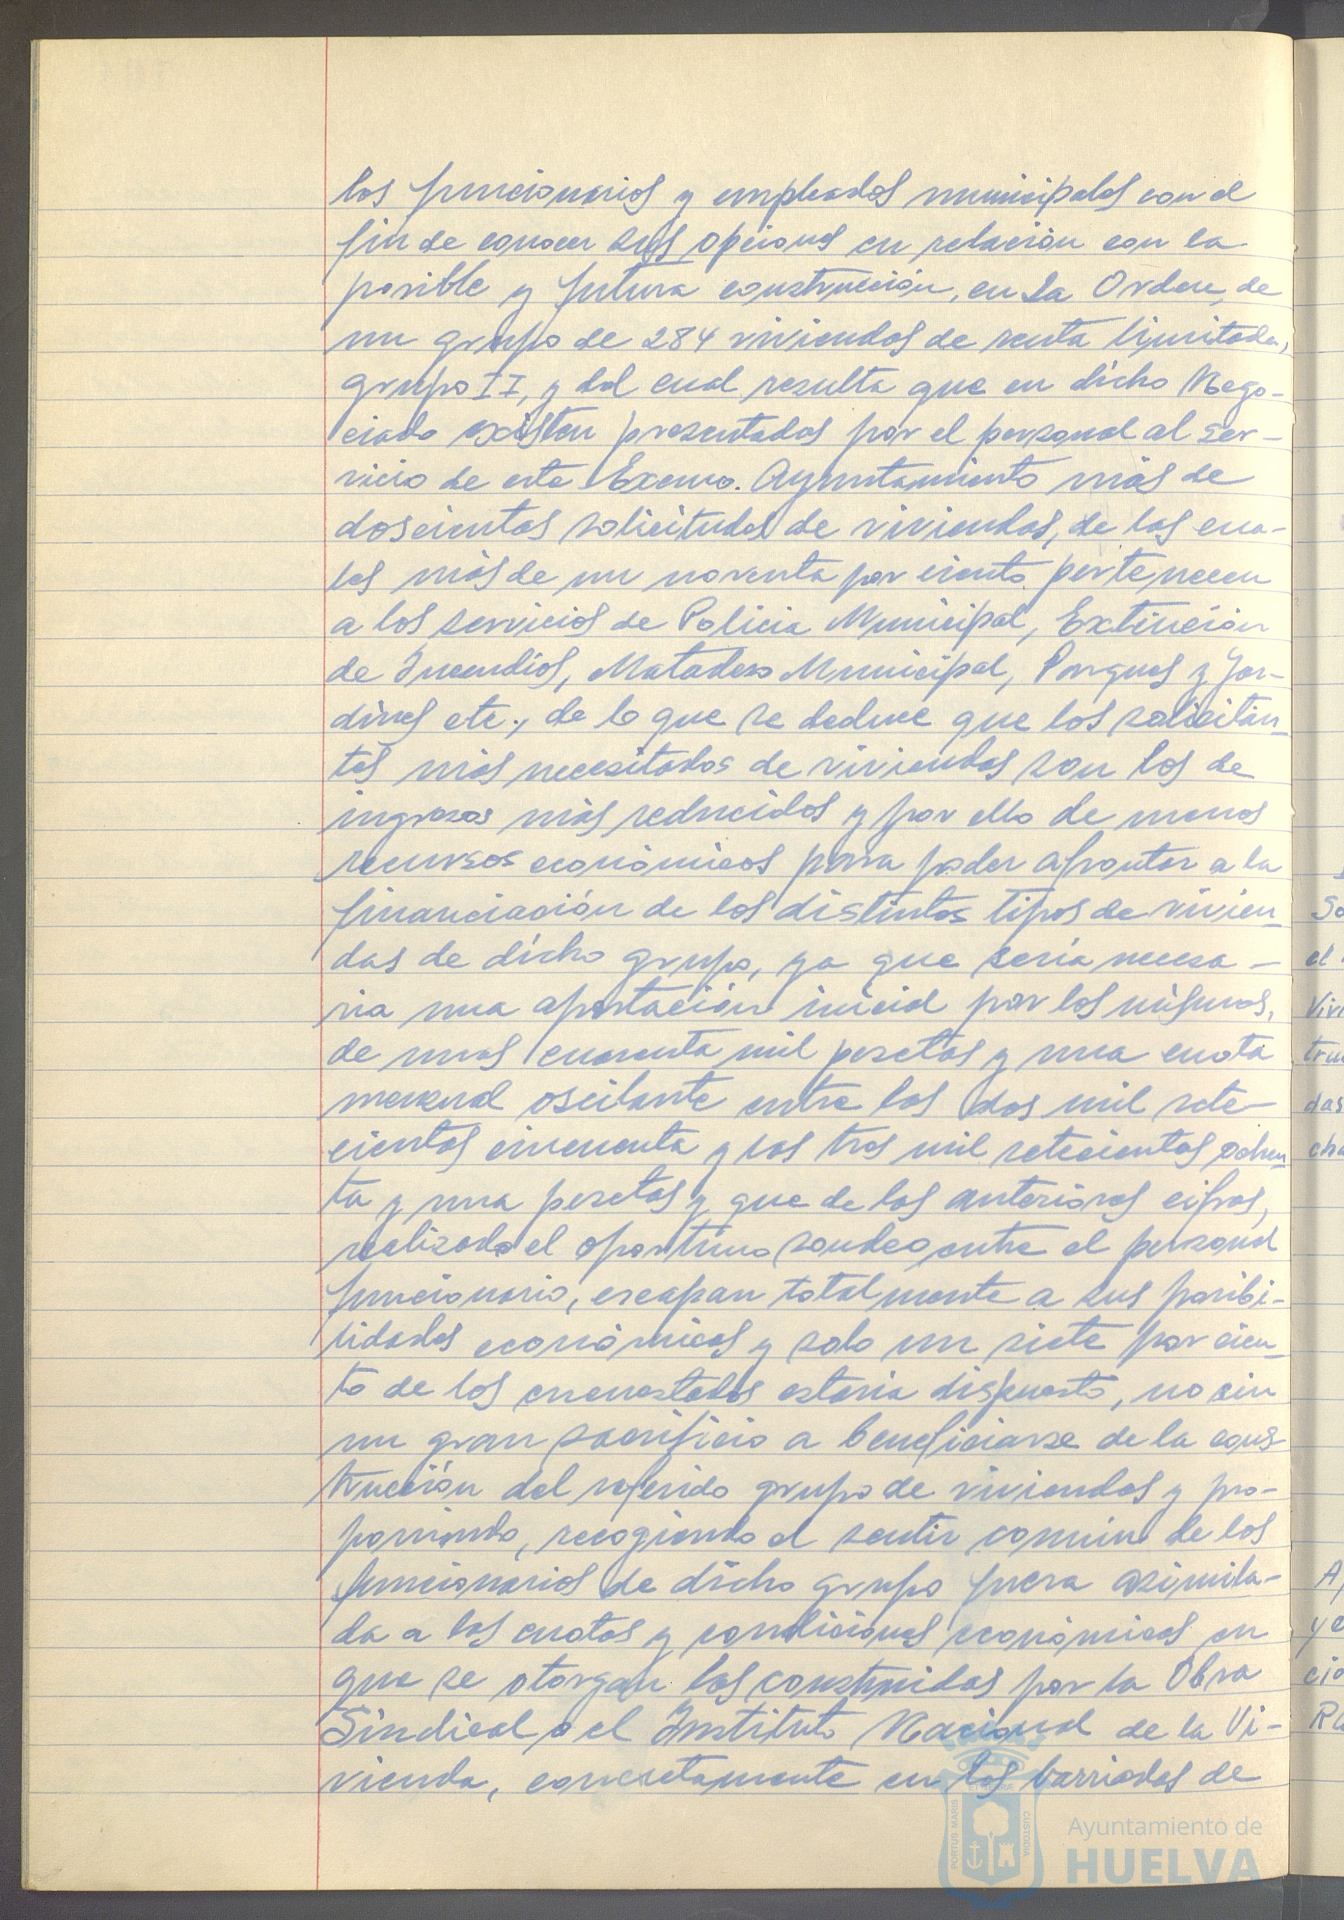 los funcionarios y empleados municipales con el
fin de conocer sus opciones en relación con la
posible y futura construcción, en La Orden, de
un grupo de 284 viviendas de renta limitada,
grupo II, y del cual resulta que en dicho Nego-
ciado existen presentadas por el personal al ser-
vicio de este Excmo. Ayuntamiento más de
doscientas solicitudes de viviendas, de las cua-
les más de un noventa por ciento pertenecen
a los servicios de Policia Municipal, Extinción
de Incendios, Matadero Municipal, Parques y Jar-
dines etc., de lo que se deduce que los solicitan-
tes más necesitados de viviendas son los de
ingresos más reducidos y por ello de menos
recursos económicos para poder afrontar a la
financiación de los distintos tipos de vivien-
das de dicho grupo, ya que sería necesa-
ria una aportación inicial por los mismos,
de unas cuarenta mil pesetas y una cuota
mensual oscilante entre las dos mil sete-
cientas cincuenta y las tres mil setecientas ochen-
ta y una pesetas y que de las anteriores cifras,
realizado el oportuno sondeo entre el personal
funcionario, escapan totalmente a sus posibi-
lidades económicas y solo un siete por cien-
to de los encuestados estaria dispuesto, no sin
un gran sacrificio a beneficiarse de la cons-
trucción del referido grupo de viviendas y pro-
poniendo, recogiendo el sentir común de los
funcionarios de dicho grupo fuera asimila-
da a las cuotas y condiciones económicas en
que se otorgan las construidas por la Obra
Sindical o el Instituto Nacional de la Vi-
vienda, concretamente en las barriadas de
So
el
Vivi
tru
das
cha
A
ye
cio
PORTUS MARIS
CUSTODIA
Ayuntamiento de
HUELVA